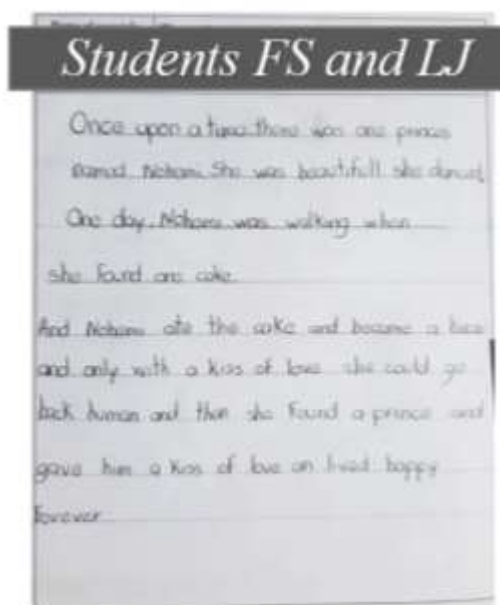 Students FS and LJ
Once upon a time there was one princes
named Nohami. She was beautifull she danced,
One day Nohami was walking when
she found one cake.
And Nohami ate the cake and became a
and only with a kiss of love she could go
back human and then she found a prince and
gave him a kiss of love an lived happy
forever